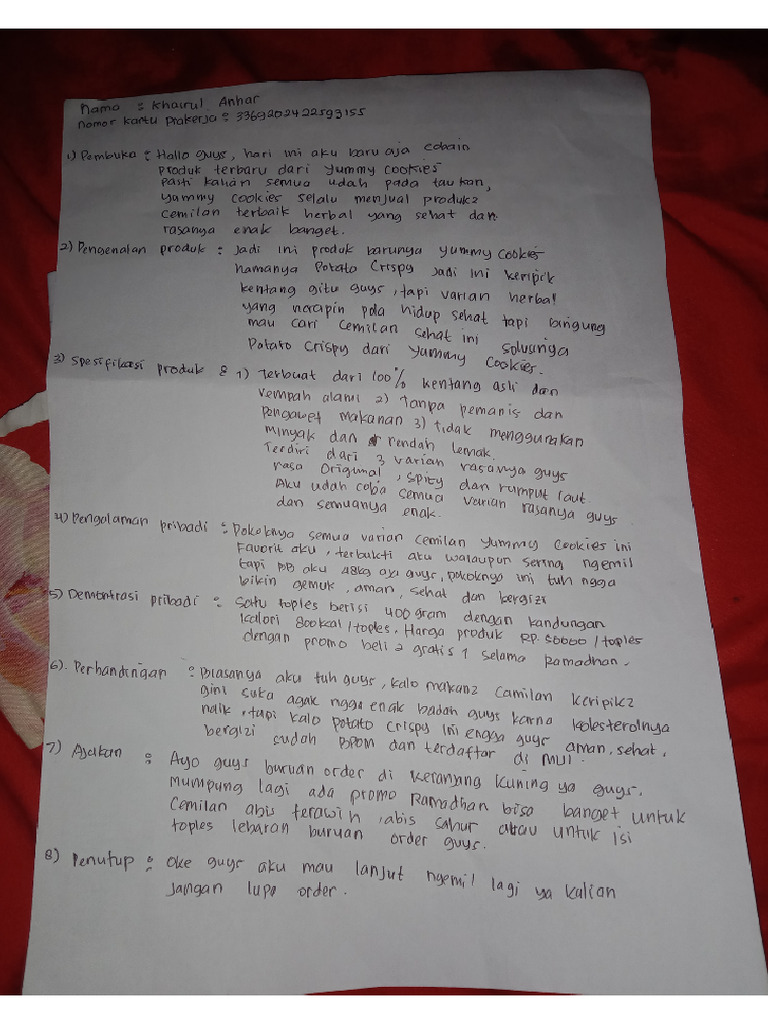 Nama : Khairul Anhar
Nomor kartu prakerja : 3369202422593155
1) Pembuka : Hallo guys, hari ini aku baru aja cobain
produk terbaru dari yummy cookies
pasti kalian semua udah pada tau kan,
yummy cookies selalu menjual produk2
cemilan terbaik herbal yang sehat dan
rasanya enak banget.
2) Pengenalan produk : Jadi ini produk barunya yummy cookies
namanya Potato Crispy jadi ini keripik
kentang gitu guys, tapi varian herbal
yang nerapin pola hidup sehat tapi bingung
mau cari cemilan sehat ini solusinya
Potato crispy dari yummy cookies.
3) Spesifikasi produk : 1) Terbuat dari 100% kentang asli dan
rempah alami 2) Tanpa pemanis dan
pengawet makanan 3) tidak menggunakan
minyak dan rendah lemak.
Terdiri dari 3 varian rasanya guys
rasa Original, spicy dan rumput laut.
Aku udah coba semua varian rasanya guys
dan semuanya enak.
4) Pengalaman pribadi : Pokoknya semua varian cemilan yummy cookies ini
Favorit aku, terbukti aku walaupun sering ngemil
tapi BB aku 48kg aja guys, pokoknya ini tuh ngga
bikin gemuk, aman, sehat dan bergizi
5) Demontrasi pribadi : Satu toples berisi 400 gram dengan kandungan
kalori 800kcal/toples, Harga produk RP. 50000/toples
dengan promo beli 2 gratis 1 selama Ramadhan.
6). Perbandingan : Biasanya aku tuh guys, kalo makan2 camilan keripik2
gini suka agak ngga enak badan guys karna kolesterolnya
naik, tapi kalo potato crispy ini engga guys aman, sehat,
bergizi sudah BPOM dan terdaftar di MUI.
7) Ajakan : Ayo guys buruan order di keranjang kuning ya guys.
mumpung lagi ada promo Ramadhan bisa banget untuk
Cemilan abis terawih, abis sahur atau untuk isi
toples lebaran buruan order guys.
8) Penutup : Oke guys aku mau lanjut ngemil lagi ya kalian
jangan lupa order.